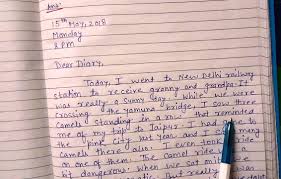 Ans:
15th May, 2018
Monday
8 PM
Dear Diary,
Today, I went to New Delhi railway
station to receive granny and grandpa. It
was really a sunny day. While we were
crossing the Yamuna bridge, I saw three
Camels standing in a row that reminded
me of my trip to Jaipur. I had gone to
the pink city last year and I saw many
camels there also. I even took a ride
on one of them. The camel ride was a
bit dangerous. When we sat on it
But really was